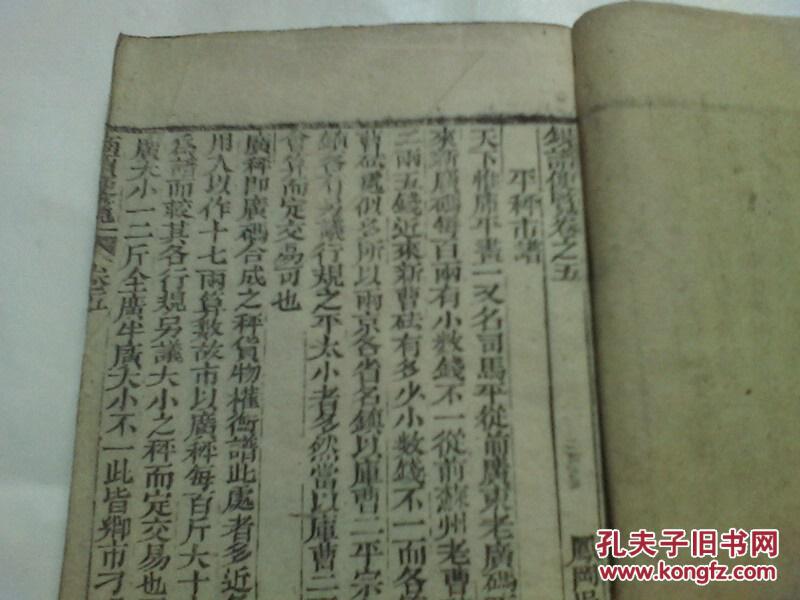 便覽卷之五
平秤市譜
天下惟庫平畫一又名司馬平從前廣東老廣碼
來新廣碼每百兩有小數錢不一從前蘇州老曹
二兩五錢近來新曹砝有多少小數錢不一而各
曹砝處似多所以兩京各省名鎮以庫曹二平宗
鎮各行之議行規之平太小者多然當以庫曹二
會算而定交易可也
廣秤即廣碼合成之秤貨物權衡譜此處者多近
用入以作十七兩算數故市以廣秤每百斤大十
為譜而較其各行規另議大小之秤而定交易也
廣大小一二斤全廣半廣大小不一此皆鄉市
卷五
鳳岡
孔夫子旧书网
www.kongfz.com